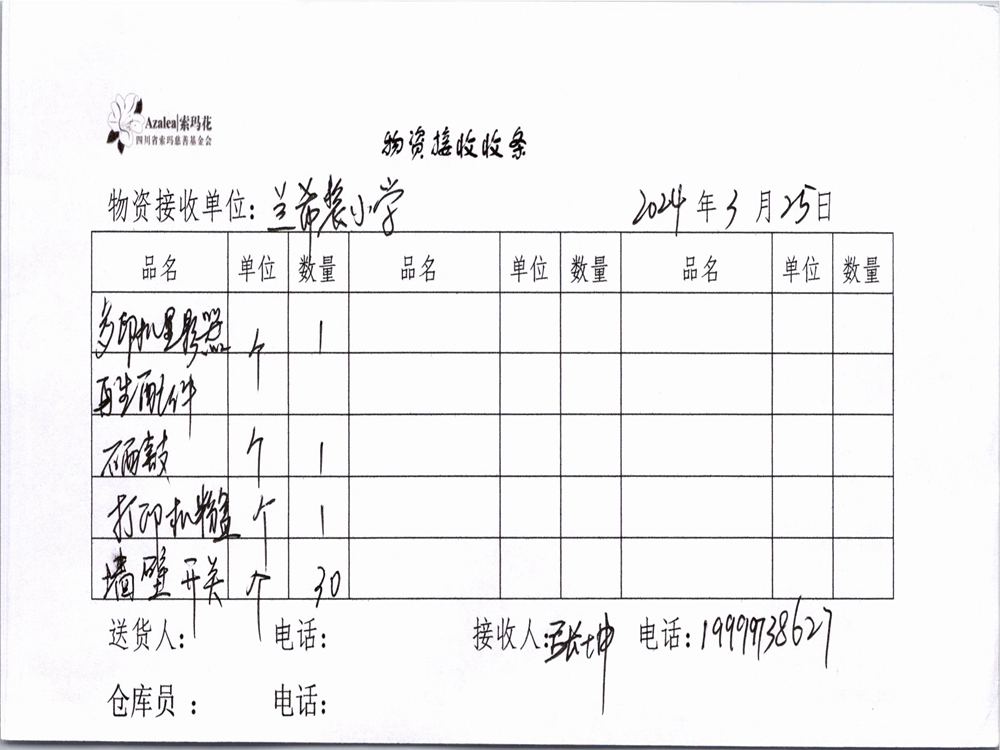 Azalea|索玛花
四川省索玛慈善基金会
物资接收收条
物资接收单位：兰希装小学 2024 年 3 月 25 日
品名 单位 数量 品名 单位 数量 品名 单位 数量
多印机显影器 个 1
再生配件
硒鼓 个 1
打印机粉盒 个 1
墙壁开关 个 30
送货人： 电话： 接收人：张坤 电话：19999738627
仓库员 ： 电话：